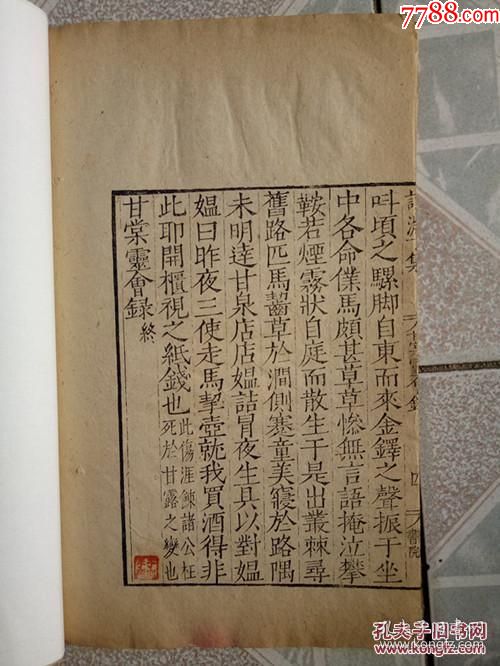 7788.com
叫頃之騾脚自東而來金鐸之聲振于坐
中各命僕馬頗甚草草慘無言語掩泣攀
鞍若煙霧狀自庭而散生于是出叢棘尋
舊路匹馬齧草於澗側蹇童美寢於路隅
未明達甘泉店店媼詰冒夜生具以對媼
媼曰昨夜三使走馬挈壺就我買酒得非
此耶開櫃視之紙錢也
此傷涯餗諸公枉
死於甘露之變也
甘棠靈會録 終
四
書院
孔夫子旧书网